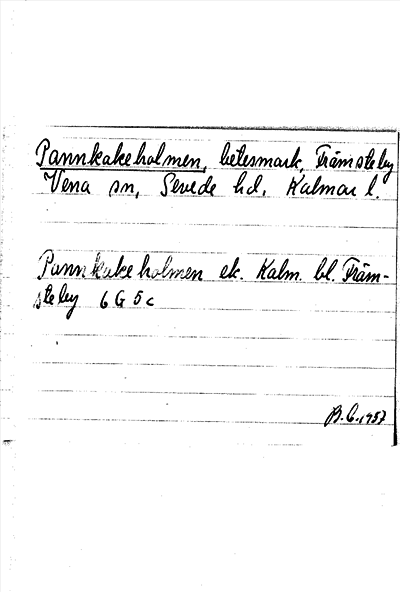 Pannkakeholmen, betesmark, Främsteby
Vena sn, Sevede hd, Kalmar l.
Pannkakeholmen ek. Kalm. bl. Främ-
steby 6 G 5 c
B. C. 1957